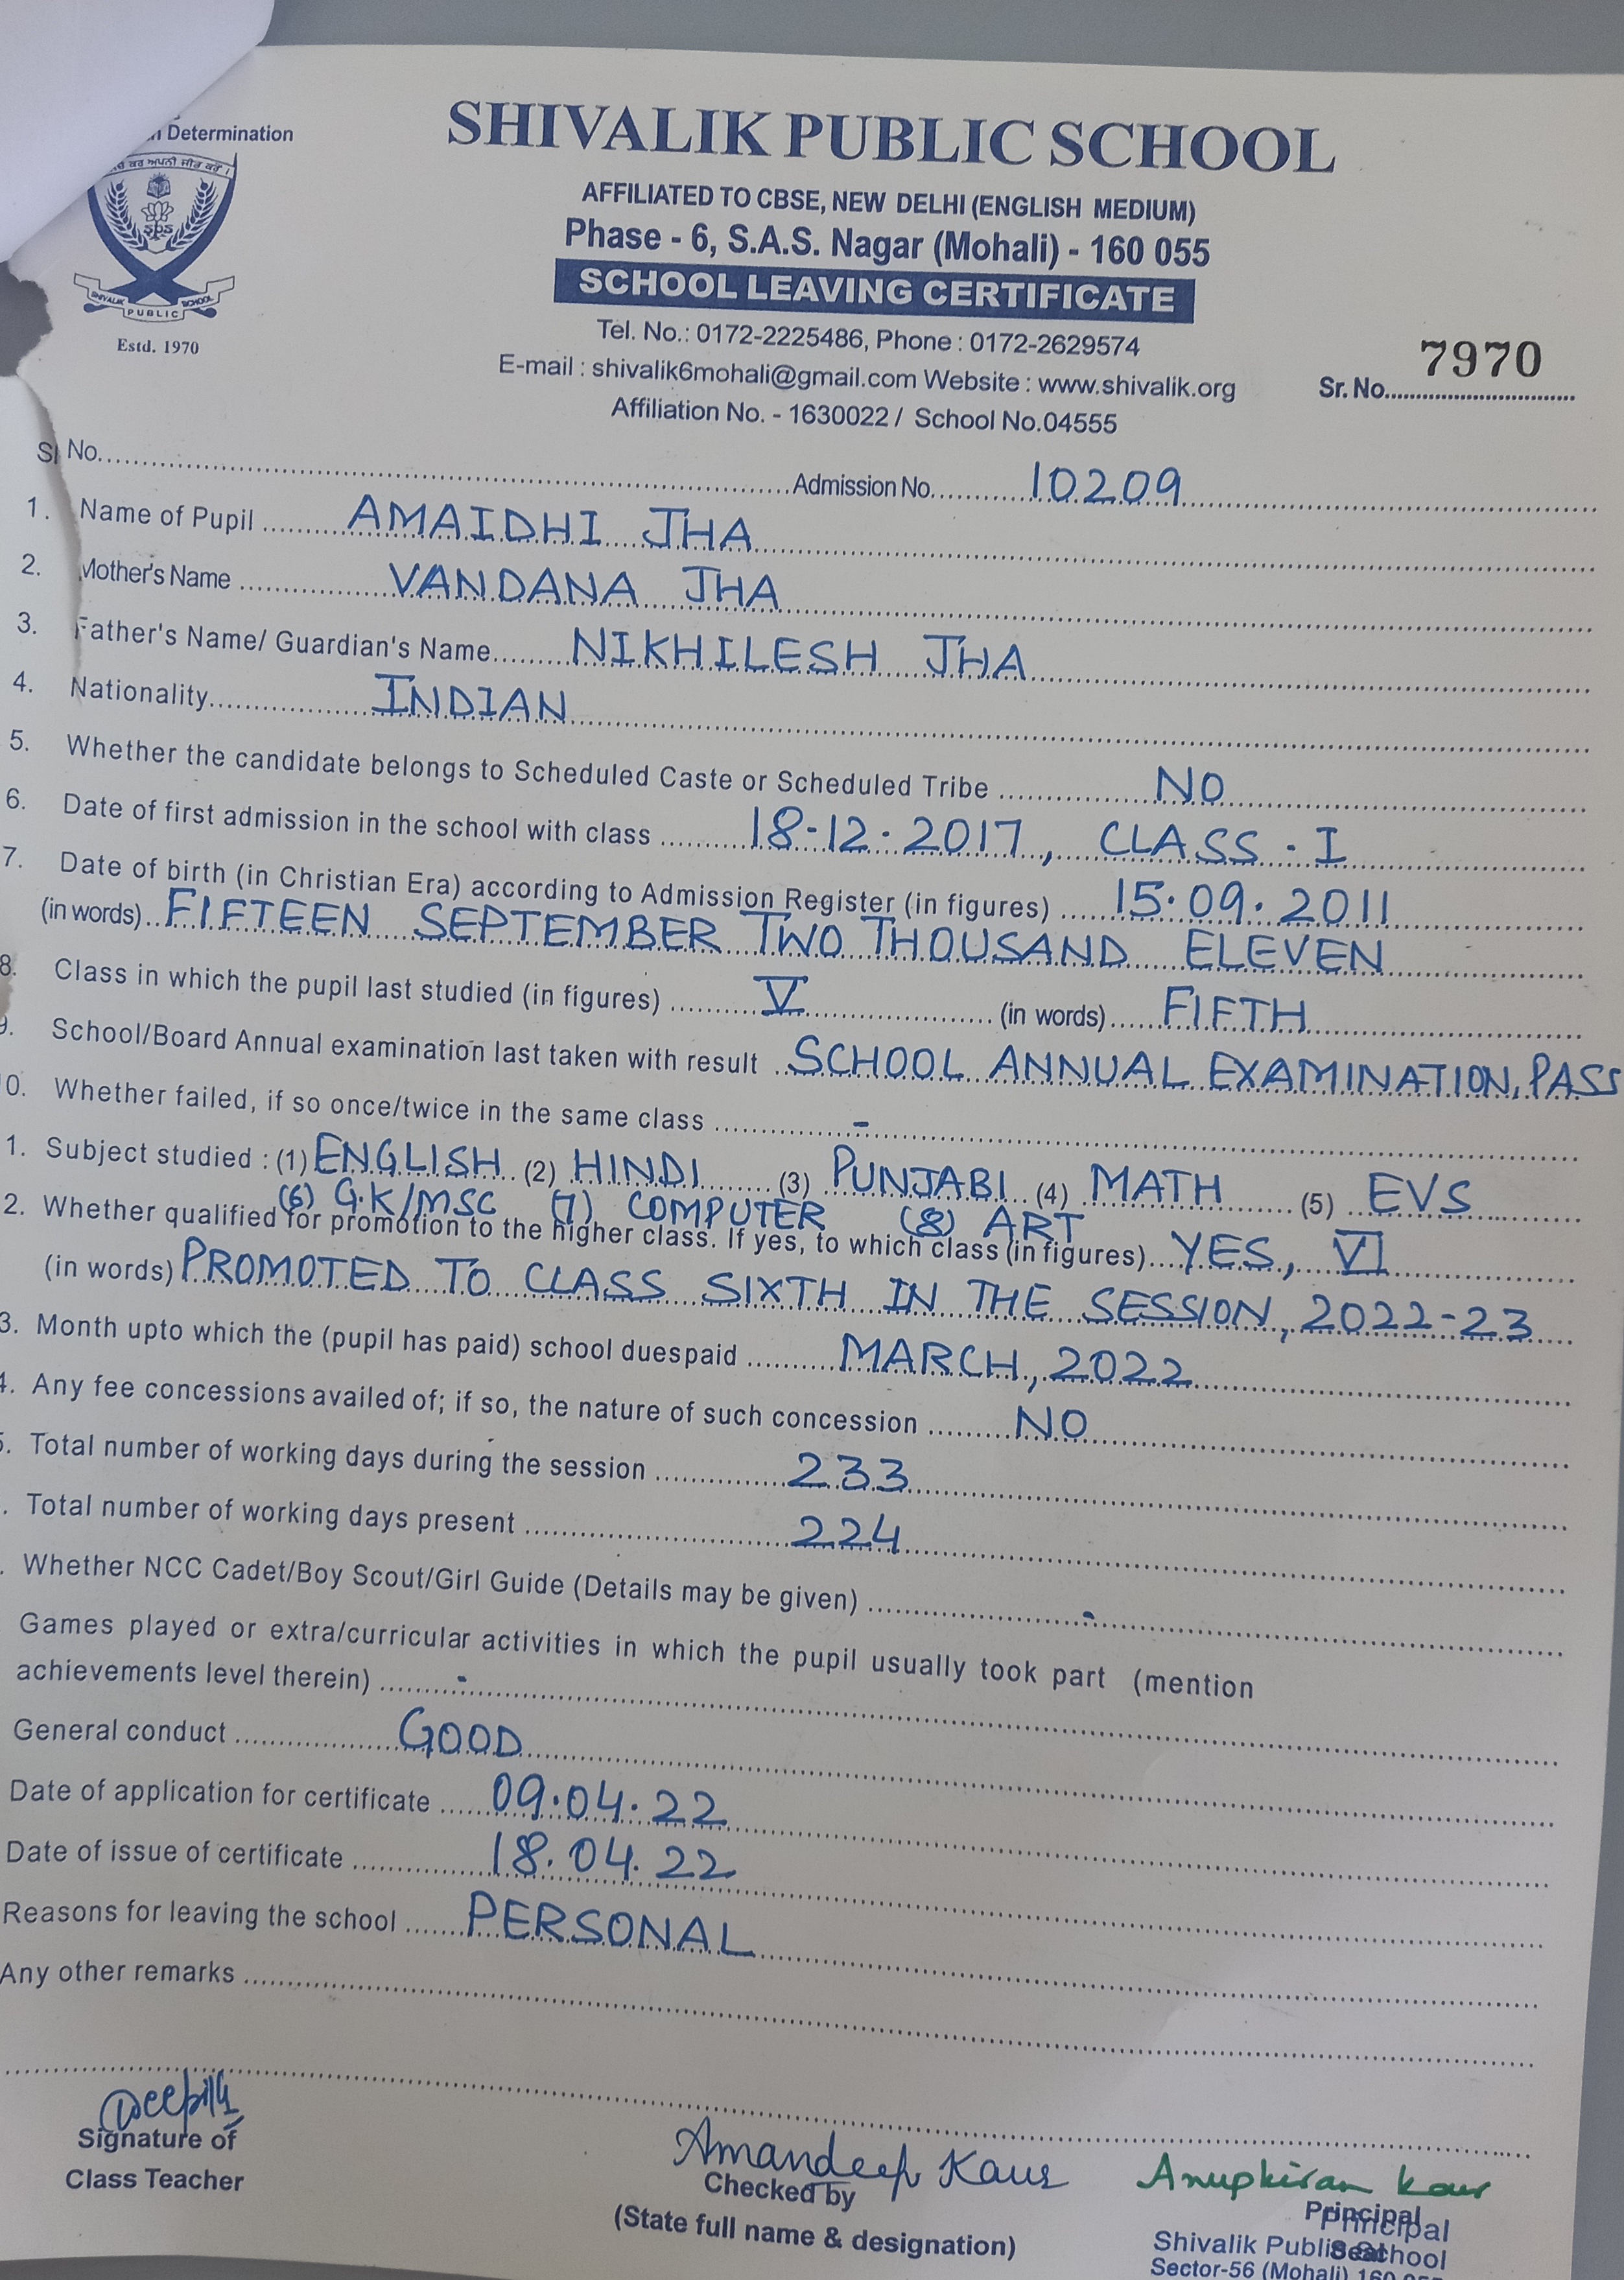 Determination
ਕਰ ਅਪਨੀ ਜੀਤ ਕਰੋਂ ।
SPS
SHIVALIK PUBLIC SCHOOL
Estd. 1970
SHIVALIK PUBLIC SCHOOL
AFFILIATED TO CBSE, NEW DELHI (ENGLISH MEDIUM)
Phase - 6, S.A.S. Nagar (Mohali) - 160 055
SCHOOL LEAVING CERTIFICATE
Tel. No.: 0172-2225486, Phone : 0172-2629574
E-mail : shivalik6mohali@gmail.com Website : www.shivalik.org
Affiliation No. - 1630022 / School No.04555
Sr. No. 7970
Sl No. Admission No. 10209
1. Name of Pupil AMAIDHI JHA
2. Mother's Name VANDANA JHA
3. Father's Name/ Guardian's Name NIKHILESH JHA
4. Nationality INDIAN
5. Whether the candidate belongs to Scheduled Caste or Scheduled Tribe NO
6. Date of first admission in the school with class 18-12-2017, CLASS - I
7. Date of birth (in Christian Era) according to Admission Register (in figures) 15.09.2011
(in words) FIFTEEN SEPTEMBER TWO THOUSAND ELEVEN
8. Class in which the pupil last studied (in figures) V (in words) FIFTH
9. School/Board Annual examination last taken with result SCHOOL ANNUAL EXAMINATION, PASS
0. Whether failed, if so once/twice in the same class -
1. Subject studied : (1) ENGLISH (2) HINDI (3) PUNJABI (4) MATH (5) EVS
(6) G.K/MSC (7) COMPUTER (8) ART
2. Whether qualified for promotion to the higher class. If yes, to which class (in figures) YES, VI
(in words) PROMOTED TO CLASS SIXTH IN THE SESSION, 2022-23
3. Month upto which the (pupil has paid) school duespaid MARCH, 2022
4. Any fee concessions availed of; if so, the nature of such concession NO
5. Total number of working days during the session 233
. Total number of working days present 224
. Whether NCC Cadet/Boy Scout/Girl Guide (Details may be given) -
Games played or extra/curricular activities in which the pupil usually took part (mention
achievements level therein) -
General conduct GOOD
Date of application for certificate 09.04.22
Date of issue of certificate 18.04.22
Reasons for leaving the school PERSONAL
Any other remarks
Signature of
Class Teacher
Amandeep Kaur
Checked by
(State full name & designation)
Anupkiran Kaur
Principal
Seal
Principal
Shivalik Public School
Sector-56 (Mohali) 160